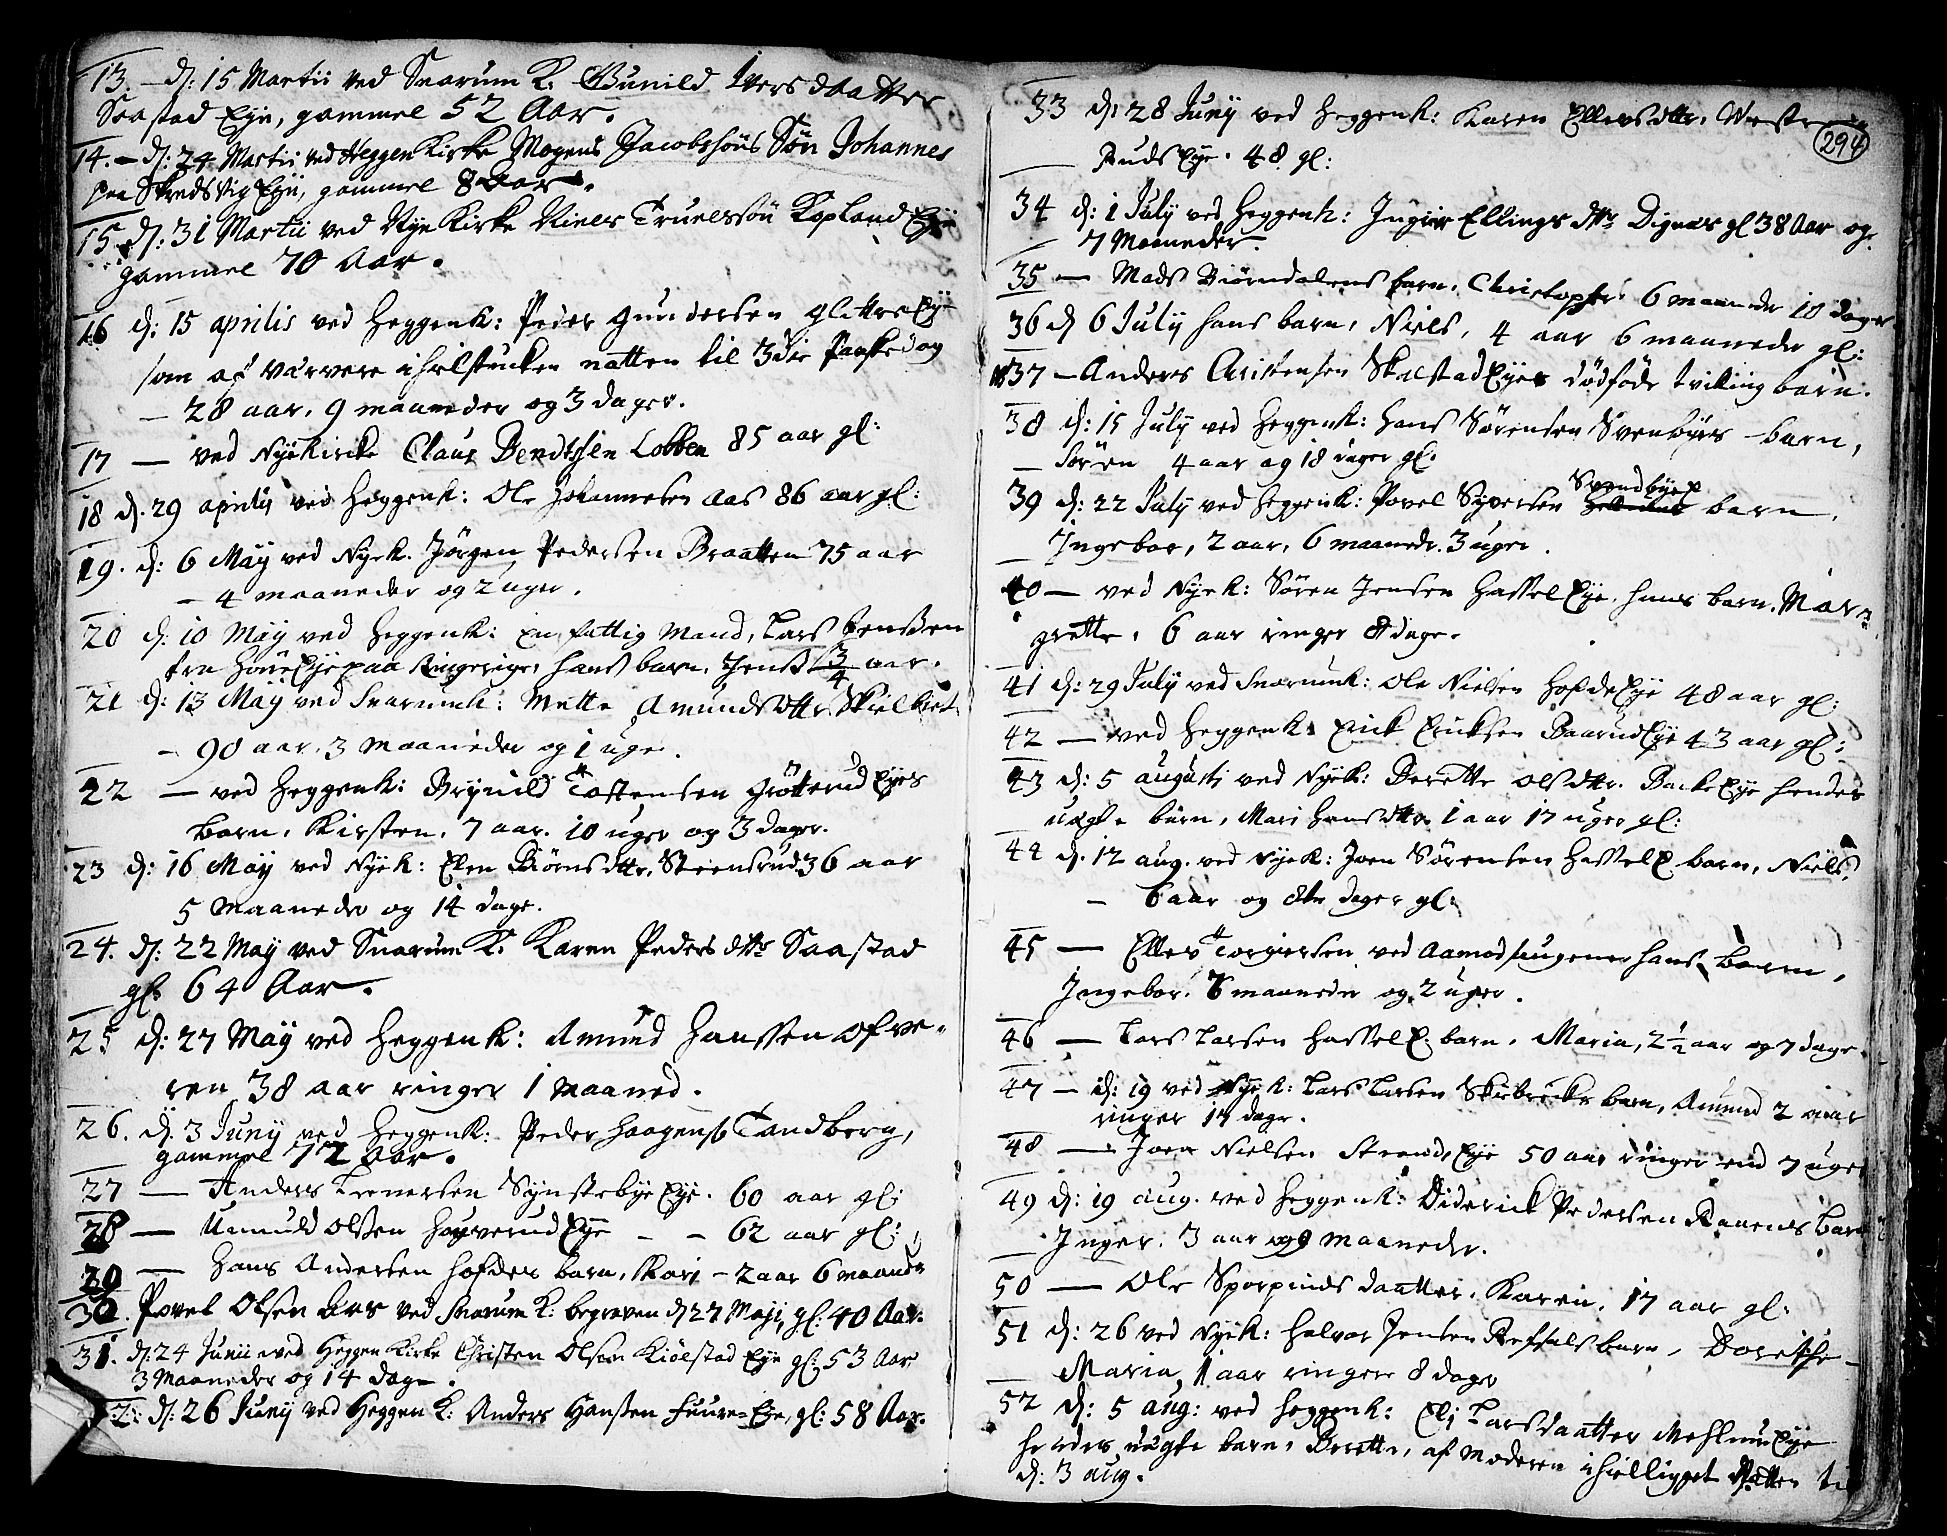 13. – d: 15 Martii ved Snarum K. Gunild Iversdaatter
Saastad Eye, gammel 52 Aar.
14. – d: 24 Martii ved Heggen Kirke Mogens Jacobssøns Søn Johannes
paa Skredsvig Eye, gammel 8 Aar.
15. d: 31 Martii ved Nye Kirke Niels Truelssøn Kopland Eye
gammel 70 Aar.
16 d: 15 aprilis ved Heggenk: Peder Gundersen Glittre Eye
som af vaarvere ihielstucken natten til 3die Paaskedag
– 28 aar, 9 maaneder og 3 dager.
17 — ved Nyekircke Claus Bendtssen Lobben 85 aar gl:
18 d. 29 aprilis ved Heggenk: Ole Johannesen Aas 86 aar gl:
19. d: 6 May ved Nyek. Jørgen Pedersen Braatten 75 aar
– 4 maaneder og 2 uger.
20 d: 10 May ved Heggenk: En fattig Mand, Lars Jenssen
fra Eye paa Ringerige, hans barn, Jens 3/4 aar.
21 d: 13 May ved Snarumk: Mette Amundsdttr Skielbret
– 90 aar. 3 maaneder og 1 uge.
22 — ved Heggenk: Brynild Tostensen Grøtterud Eyes
barn, Kirsten, 7 aar. 10 uger og 3 dager.
23 d: 16 May ved Nyek: Elen Biørnsdttr. Steensrud 36 aar
5 Maaneder og 14 dage.
24. d: 22 May ved Snarum K. Karen Pedersdttr Saastad
gl: 64 Aar.
25 d: 27 May ved Heggenk: Amund Hanssen Ofve-
ren 38 aar ringer 1 maaned.
26. d. 3 Juny ved Heggenk: Peder Haagens: Tandberg,
gammel 72 Aar.
27 — Anders Svensbye Eye. 60 aar gl:
28 — Olssen Høyverud Eye – – 62 aar gl:
30 — Hans Andersen Hofdes barn, Kari – 2 aar 6 maander
30. Povel Olsen Aas ved Snarum K: begraven d 27 Maji, gl: 40 Aar.
31. d: 24 Junii ved Heggen Kirke Christen Olsen Kiølstad Eye gl: 53 Aar
3 Maaneder og 14 dage.
2: d: 26 Juny ved Heggen K: Anders Hansen Fuure-Eye, gl: 58 Aar.
294
33 d: 28 Juny ved Heggenk: Karen Ellevsdttr.
Ruds Eye. 48 gl:
34 d: 1 July ved Heggenk: Ingier Ellingsdttr Dignæs gl 38 Aar og
7 Maaneder.
35 — Mads Biørndalens barn, Christopher 6 maaneder 10 dager.
36 d 6 July hans barn, Niels, 4 aar 6 maaneder gl:
37 – Anders Christensen Skalstad Eyes dødføde tvilling barn.
38 d: 15 July ved Heggenk: Hans Sørensen Svenbyes barn,
– Søren 4 aar og 18 dager gl.
39 d: 22 July ved Heggenk: Povel Syversen Svendbye barn,
Ingebor, 2 aar, 6 maaneder. 3 uger.
40 — ved Nyek: Søren Jensen Hassel Eye. hans barn, Mar-
grette, 6 aar ringer 8 dage.
41 d: 29 July ved Snarumk: Ole Nielsen Hofde Eye 48 aar gl:
42 — ved Heggenk: Erick Ericksen Baarud Eye 43 aar gl:
43 d: 5 augusti ved Nyek: Berette Olsdttr. Backe Eye hendes
uægte barn, Mari Hansdttr. 1 aar 17 uger gl:
44 d. 12 aug. ved Nyek: Joen Sørensen Hassel E. barn, Niels,
– 6 aar og dager gl:
45 — Ellev Torgiersen ved Aamodsaugene hans barn,
Ingebor. 6 maaneder og 2 uger.
46 — Lars Larsen Hassel E. barn, Maria, 2 1/2 aar og 7 dage.
47 – d: 19 ved Nyek: Lars Larsen Skiebrecke barn, Amund 2 aar
ringer 17 dage.
48 — Joen Nielsen Strand, Eye 50 aar ringer end 7 uger
49 d: 19 aug. ved Heggenk: Diderick Pedersen Ranens barn
– Inger. 3 aar og 9 maaneder.
50 — Ole Sporpinds daatter, Karen, 17 aar gl:
51 d: 26 ved Nyek: Halvor Jensen barn, Dorethe
– Maria, 1 aar ringere 8 dager
52 d: 5 aug: ved Heggenk: Eli Larsdaatter Mehlum Eye
hendes uægte barn, Berette, af Moderen ihielligget Natten til
d: 3 aug.